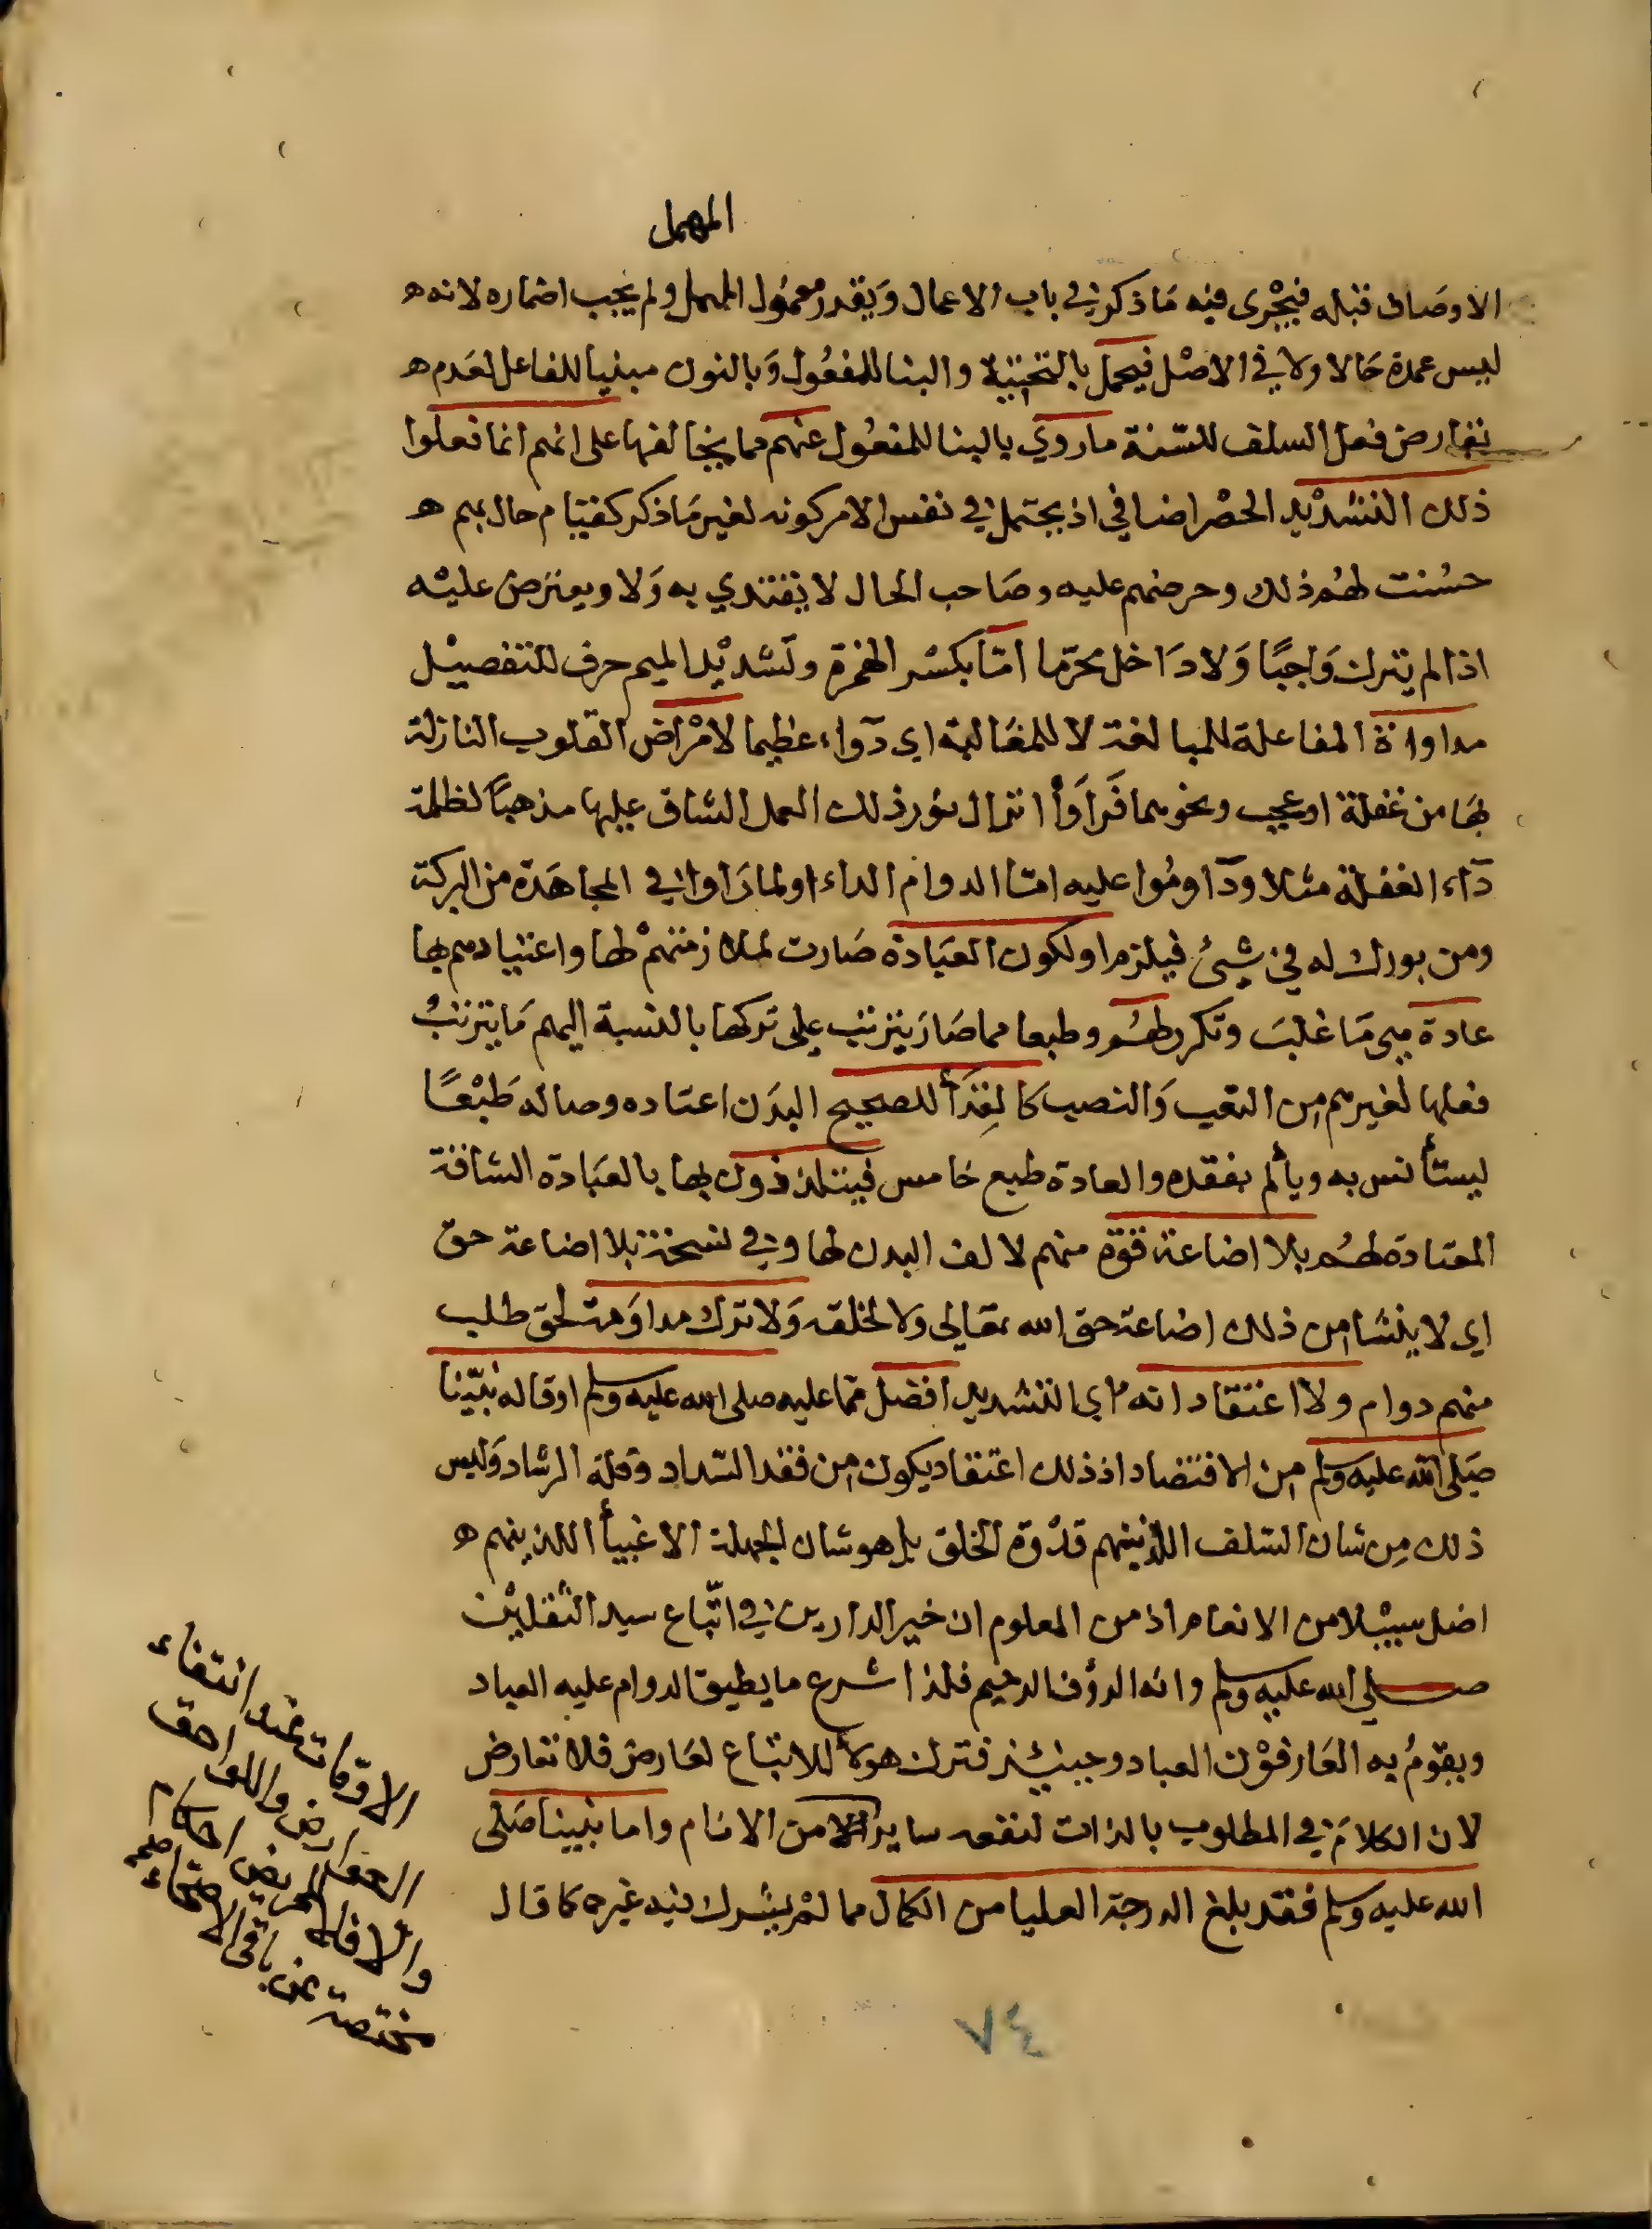 المهمل
الاوصاف قبله فيجْرى فيه مَا ذكر في باب الاعمال وَيقدر معمُول المهمل ولم يجب اضماره لانه ه
ليس عمدة حَالا ولا في الاصْل فيحمل بالتحتيّة والبنا للمفعُول وَبالنون مبنيا للفاعل لعَدم ه
تعارض فعل السلف للسّنة ماروي بالبنا للمفعُول عنهم مما يخالفها على انهم انما فعلوا
ذلك التشدْيد الحصْر اضافي اذ يحتمل في نفس الامر كونه لغير مَا ذكر كقيَام حال بهم ه
حسُنت لهُم ذلك وحرضهم عليه وصَاحب الحال لا يقتدي به وَلا ويعترض عليْه
اذا لم يترك وَاجبًا وَلا دَاخل محرّما امّا بكسْر الهمزة وتَشديْد الميم حرف للتفصيْل
مداواة المفاعلة للمبالغة لا للمغَالبة اي دَواء عظيما لامْرَاض القلوب النازلة
بهَا من غفلة او عجب ونحوهما فَرَاَوْا انزال نور ذلك العمل الشاق عليها مذهبًا لظلمة
دَاء الغفلة مثلا ودَاومُوا عليه امّا الدوام الداء او لما رَاوا في المجاهَدة من البركة
ومن بورك له في شيئ فيلزم او لكون العبَادة صَارت لملازمتهمْ لها واعتيادهم بها
عادة هى مَا غلبَ وتكرر لهُم وطبعا مما صَارَ يترتب على تركها بالنسبة اليهم مَا يترتبُ
فعلها لغيرهم من التعب وَالنصب كالغِذَأ للصحيح البدَن اعتاده وصاله طَبْعًا
ليستأنس به ويألم بفقده والعادة طبع خامس فيتلذذون بها بالعبَادة الشاقة
المعتادة لهُم بلا اضاعة قوّة منهم لالف البدن لها وفي نسخة بلا اضاعة حق
اي لا ينشا من ذلك اضاعة حق الله تعَالى ولا لخلقه وَلا ترك مداوَمة لحق طلب
منهم دوام ولا اعتقاد انه اي التشديد افضل مما عليه صلى الله عليه وسلم او قاله نبيّنا
صَلى الله عليه وسلم من الاقتصاد اذ ذلك اعتقاد يكون من فقد السّداد وقلة الرشاد وَليس
ذلك مِن شان السّلف اللّذينهم قدْوة الخلق بل هو شان الجهلة الاغبيأ اللذينهم ه
اضل سبيْلا من الانعام اذ من المعلوم ان خير الدارين في اتّباع سيد الثقليْن
صلى الله عليه وسلم وانه الرؤف الرحيم فلذا شرع ما يطيق الدوام عليه العباد
ويقومُ به العَارفوْن العباد وحينئذ فترك هولأ للاتباع لعَارض فلا تعارض
لان الكلامَ في المطلوب بالذات لنفعه ساير الامن الانام واما نبينا صَلى
الله عليه وسلم فقد بلغ الدرجة العليا من الكمال مما لمْ يشرك فيه غيره كما قال
الاوقات عند انتفاء
العوارض واللواحق
والا فالمريض احكام
مختصة عن باقي الاصحاء
صح
٧٤